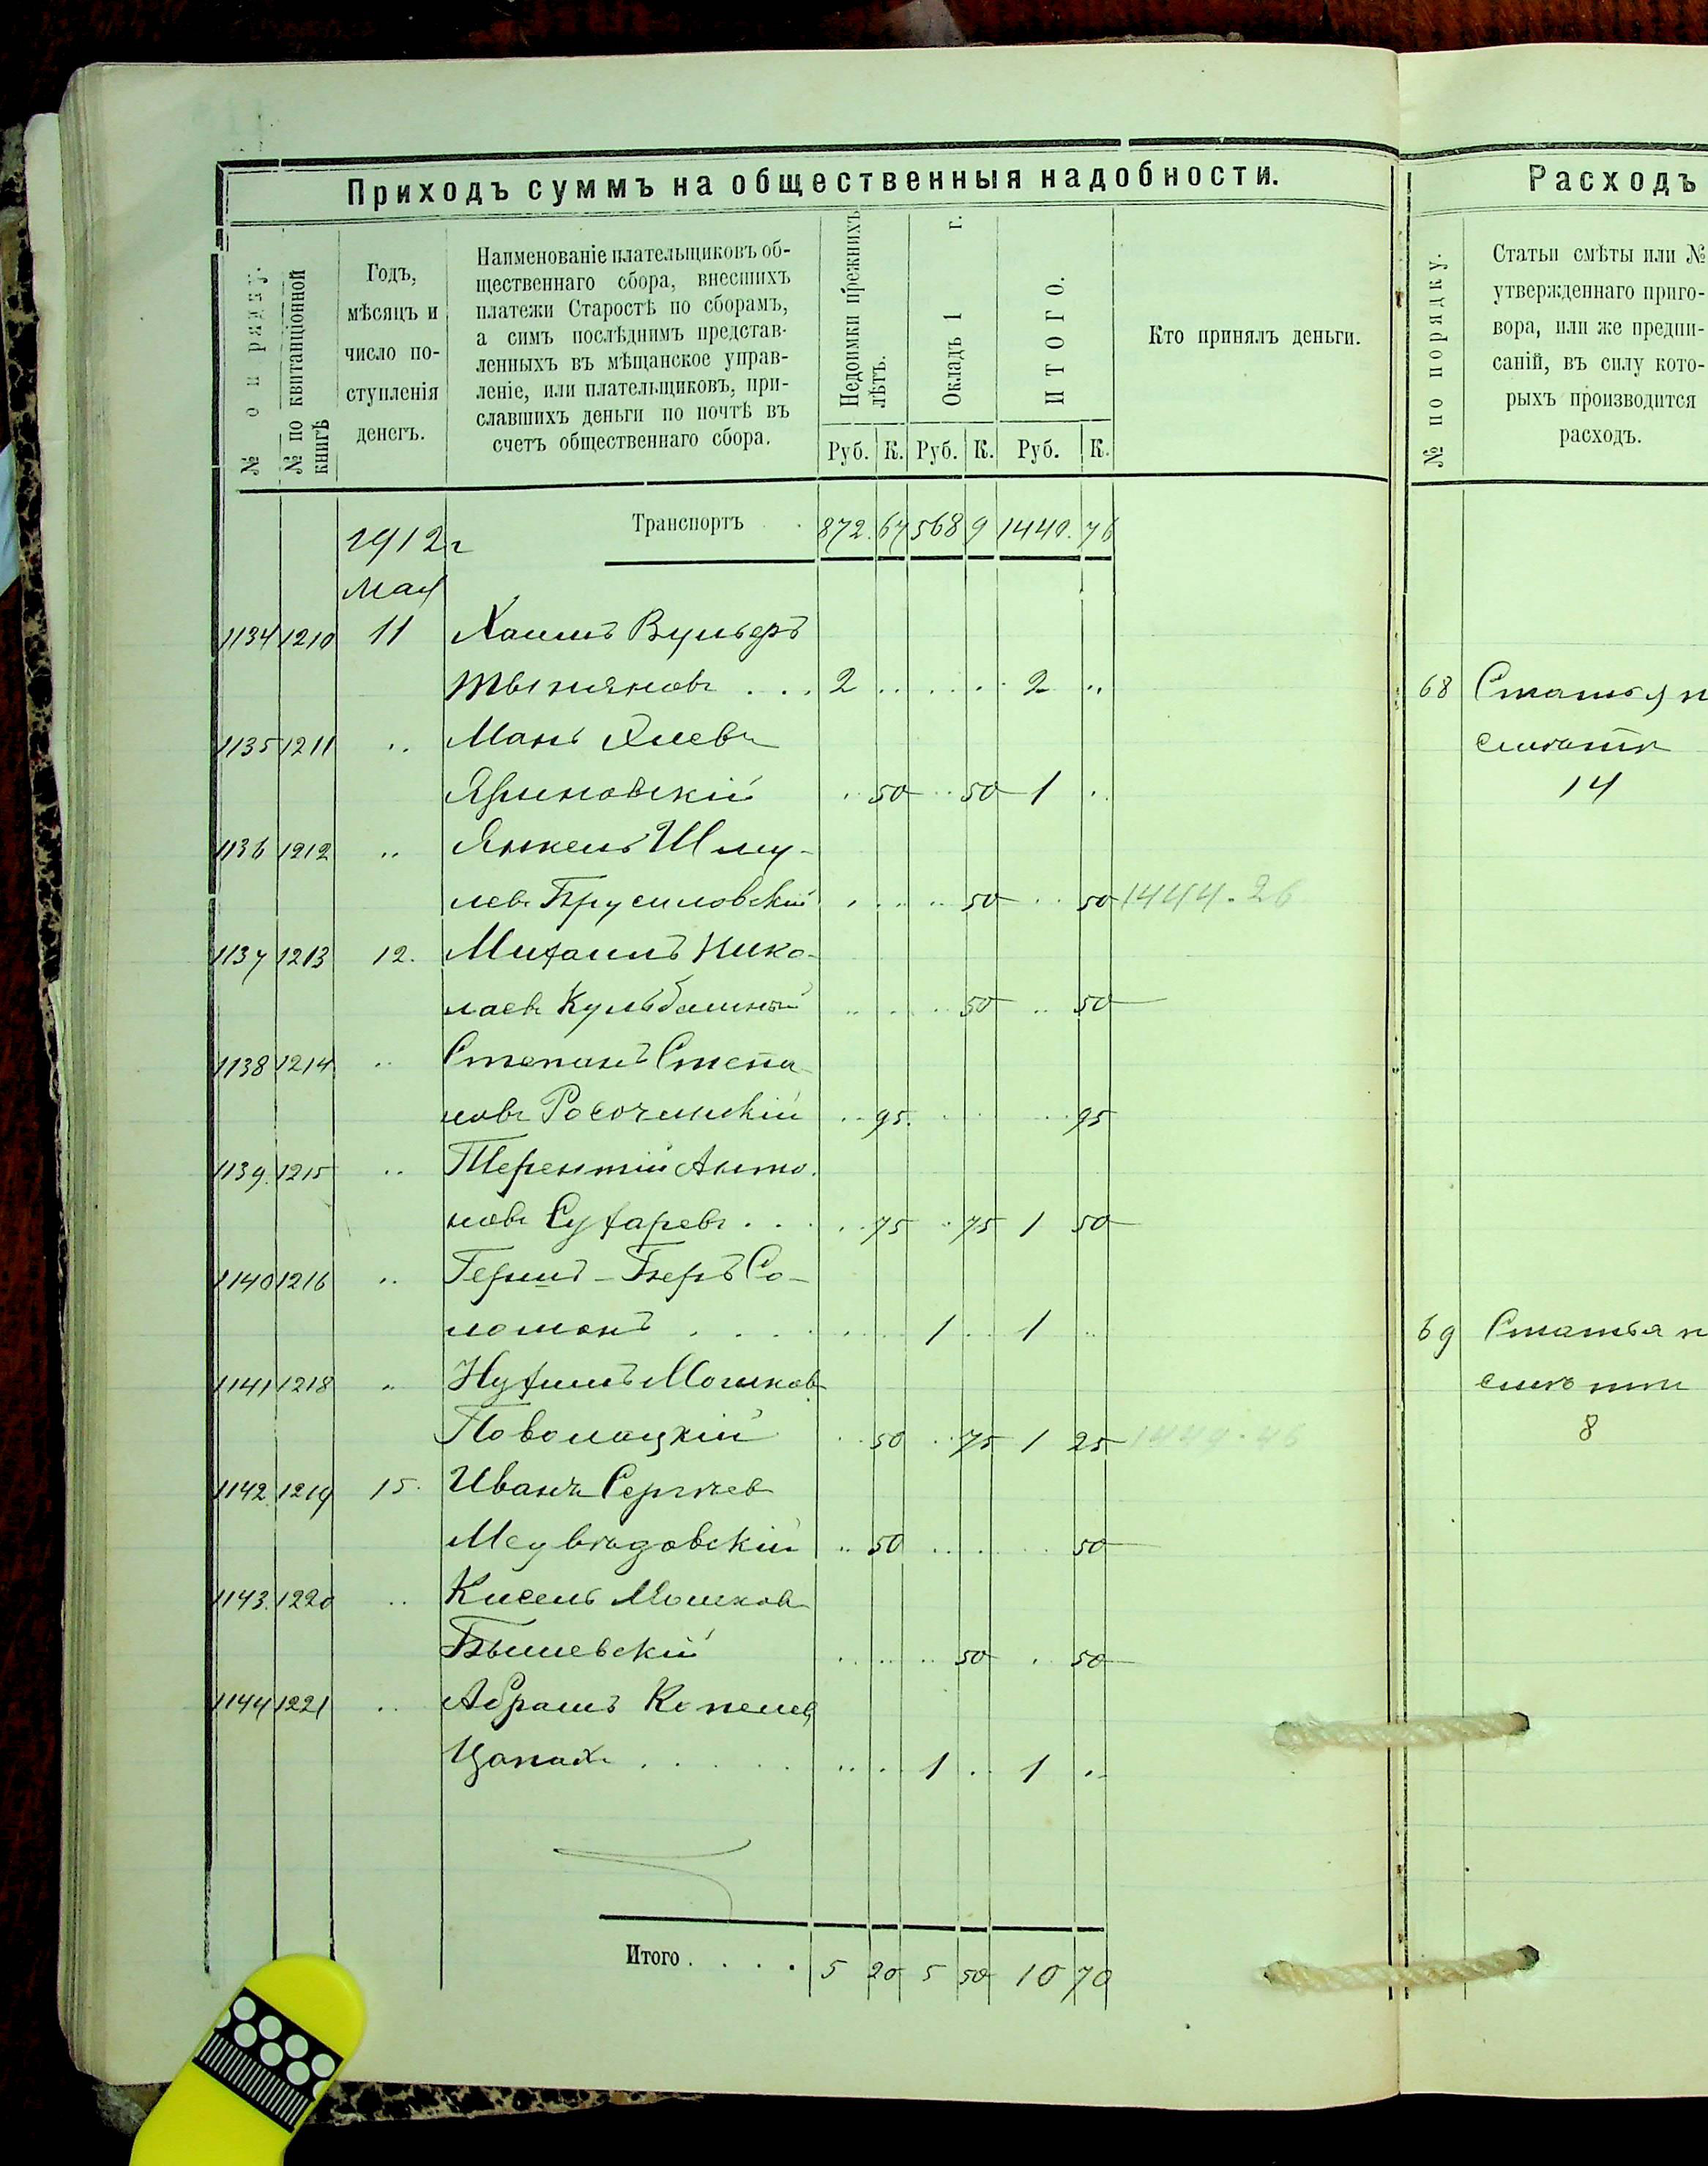 Приходъ суммъ на общественныя надобности.
№ по квитанціонной книгѣ
Годъ, мѣсяцъ и число поступленія денегъ.
Наименованіе плательщиковъ об-
щественнаго сбора, внесшихъ
платежи Старостѣ по сборамъ,
а симъ послѣднимъ представ-
ленныхъ въ мѣщанское управ-
леніе, или плательщиковъ, при-
славшихъ деньги по почтѣ въ
счетъ общественнаго сбора.
Недоимки прежнихъ лѣтъ.
Окладъ 1 г.
ИТОГО.
Руб. К. Руб. К. Руб. К.
Кто принялъ деньги.
Транспортъ 872. 67 568 9 1440. 76
1912 г
мая
1134 1210 11 Хаимъ
2 .. .. .. 2 ..
1135 1211 ..
.. 50 .. 50 1 ..
1136 1212 .. Янкель Шму-
лев. Брусиловскій .. .. .. 50 .. 50 1444.26
1137 1213 12. Михаилъ Нико-
лаев. .. .. .. 50 .. 50
1138 1214 .. Степанъ Степа-
нов. Росочинскій .. 95 .. .. .. 95
1139. 1215 .. Терентій Анто-
нов. Сухарев. .. 75 .. 75 1 50
1140 1216 .. Герш - Беръ Со-
ломонъ .. .. 1 .. 1 ..
1141 1218 .. Нухимъ Мошков.
Поволоцкій .. 50 .. 75 1 25
1142 1219 15. Иванъ Сергѣев
Медвѣдовскій .. 50 .. .. .. 50
1143. 1220 .. Кисель Мошков
Бышевскій .. .. .. 50 .. 50
1144 1221 .. Абрамъ Копелев
Цапах. .. .. 1 .. 1 ..
Итого . . . . 5 20 5 50 10 70
Расходъ
№ по порядку.
Статьи смѣты или №
утвержденнаго приго-
вора, или же предпи-
саній, въ силу кото-
рыхъ производится
расходъ.
68 Статья п
смѣты
14
69 Статья п
смѣты
8